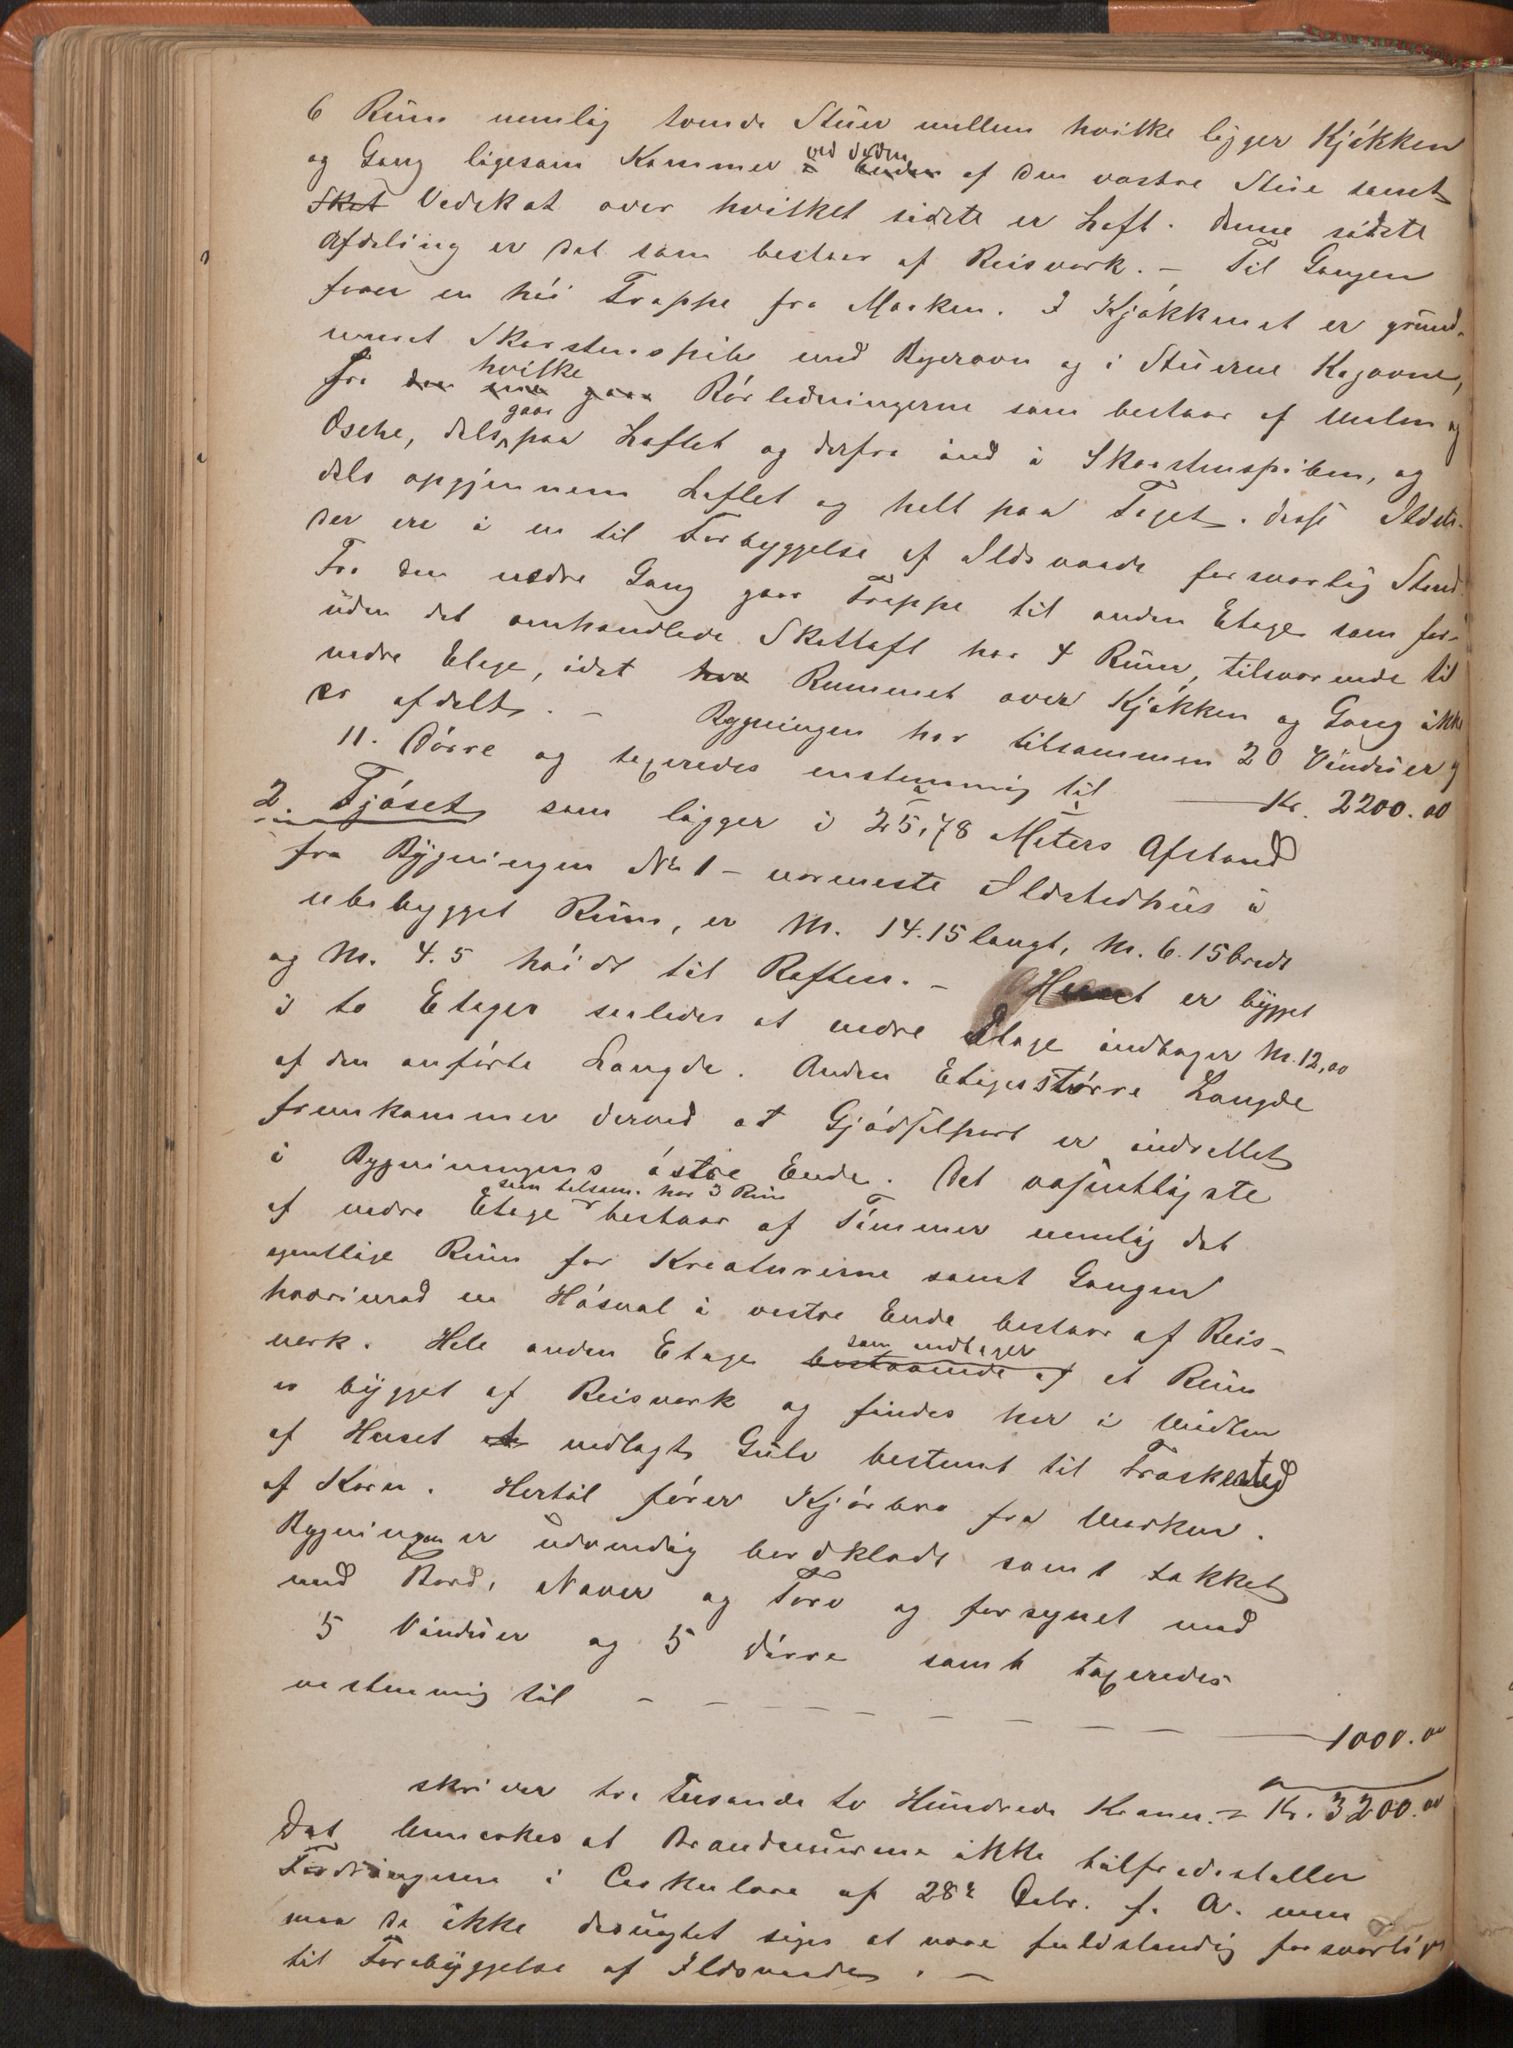 6 Rum nemlig tvende Stuer mellem hvilke ligger Kjøkken
og Gang ligesom Kammer ved Siden af den vestre Stue samt
Skot Vedskot over hvilket sidste er Loft. Denne sidste
Afdeling er det som bestaar af Reisverk. – Til Gangen
fører en høi Trappe fra Marken. I Kjøkkenet er grund-
muret Skorstenspibe med Bagerovn og i Stuerne Kogovne,
fra hvilke Rørledningerne som bestaar af Malm og
Osche, dels gaar paa Loftet og derfra ind i Skorstenspiben, og
dels opgjennem Loftet og helt paa Taget. Disse Ildste-
der ere i en til Forbyggelse af Ildsvaade forsvarlig Stand.
Fra den nedre Gang gaar Trappe til anden Etage som for-
uden det omhandlede Skotloft har 4 Rum, tilsvarende til
nedre Etage, idet Rummet over Kjøkken og Gang ikke
er afdelt. – Bygningen har tilsammen 20 Vinduer og
11. Dørre og taxeredes enstemmig til — Kr. 2200.00
2. Fjøset som ligger i 25,78 Meters Afstand
fra Bygningen No 1 – nærmeste Ildstedhus i
ubebygget Rum, er M. 14.15 langt, M. 6.15 bredt
og M. 4.5 høidt til Raften. – Huset er bygget
i to Etager saaledes at nedre Etage indtager M. 12,00
af den anførte Længde. Anden Etages større Længde
fremkommer derved at Gjødselport er indrettet
i Bygningens østre Ende. Det væsentligste
af nedre Etage som tilsam. har 3 Rum bestaar af Tømmer nemlig det
egentlige Rum for Kreaturerne samt Gangen
hvorimod en Høsval i vestre Ende bestaar af Reis-
verk. Hele anden Etage bestaaende af som indtager et Rum
er bygget af Reisverk og findes her i Midten
af Huset et nedlagt Gulv bestemt til Træskested
af Korn. Hertil fører Kjørbro fra Marken.
Bygningen er udvendig bordklædt samt takket
med Bord, Næver og Torv og forsynet med
5 Vinduer og 5 Dørre samt taxeredes
enstemmig til – – – – – – – — 1000.00
skriver tre Tusende to Hundrede Kroner = Kr. 3200.00
Det bemærkes at Brandmurene ikke tilfredsstiller
Fordringerne i Cirkulære af 28de Oktbr. f. A. men
maa de ikke desuagtet siges at være fuldstændig forsvarlige
til Forebyggelse af Ildsvaade. –